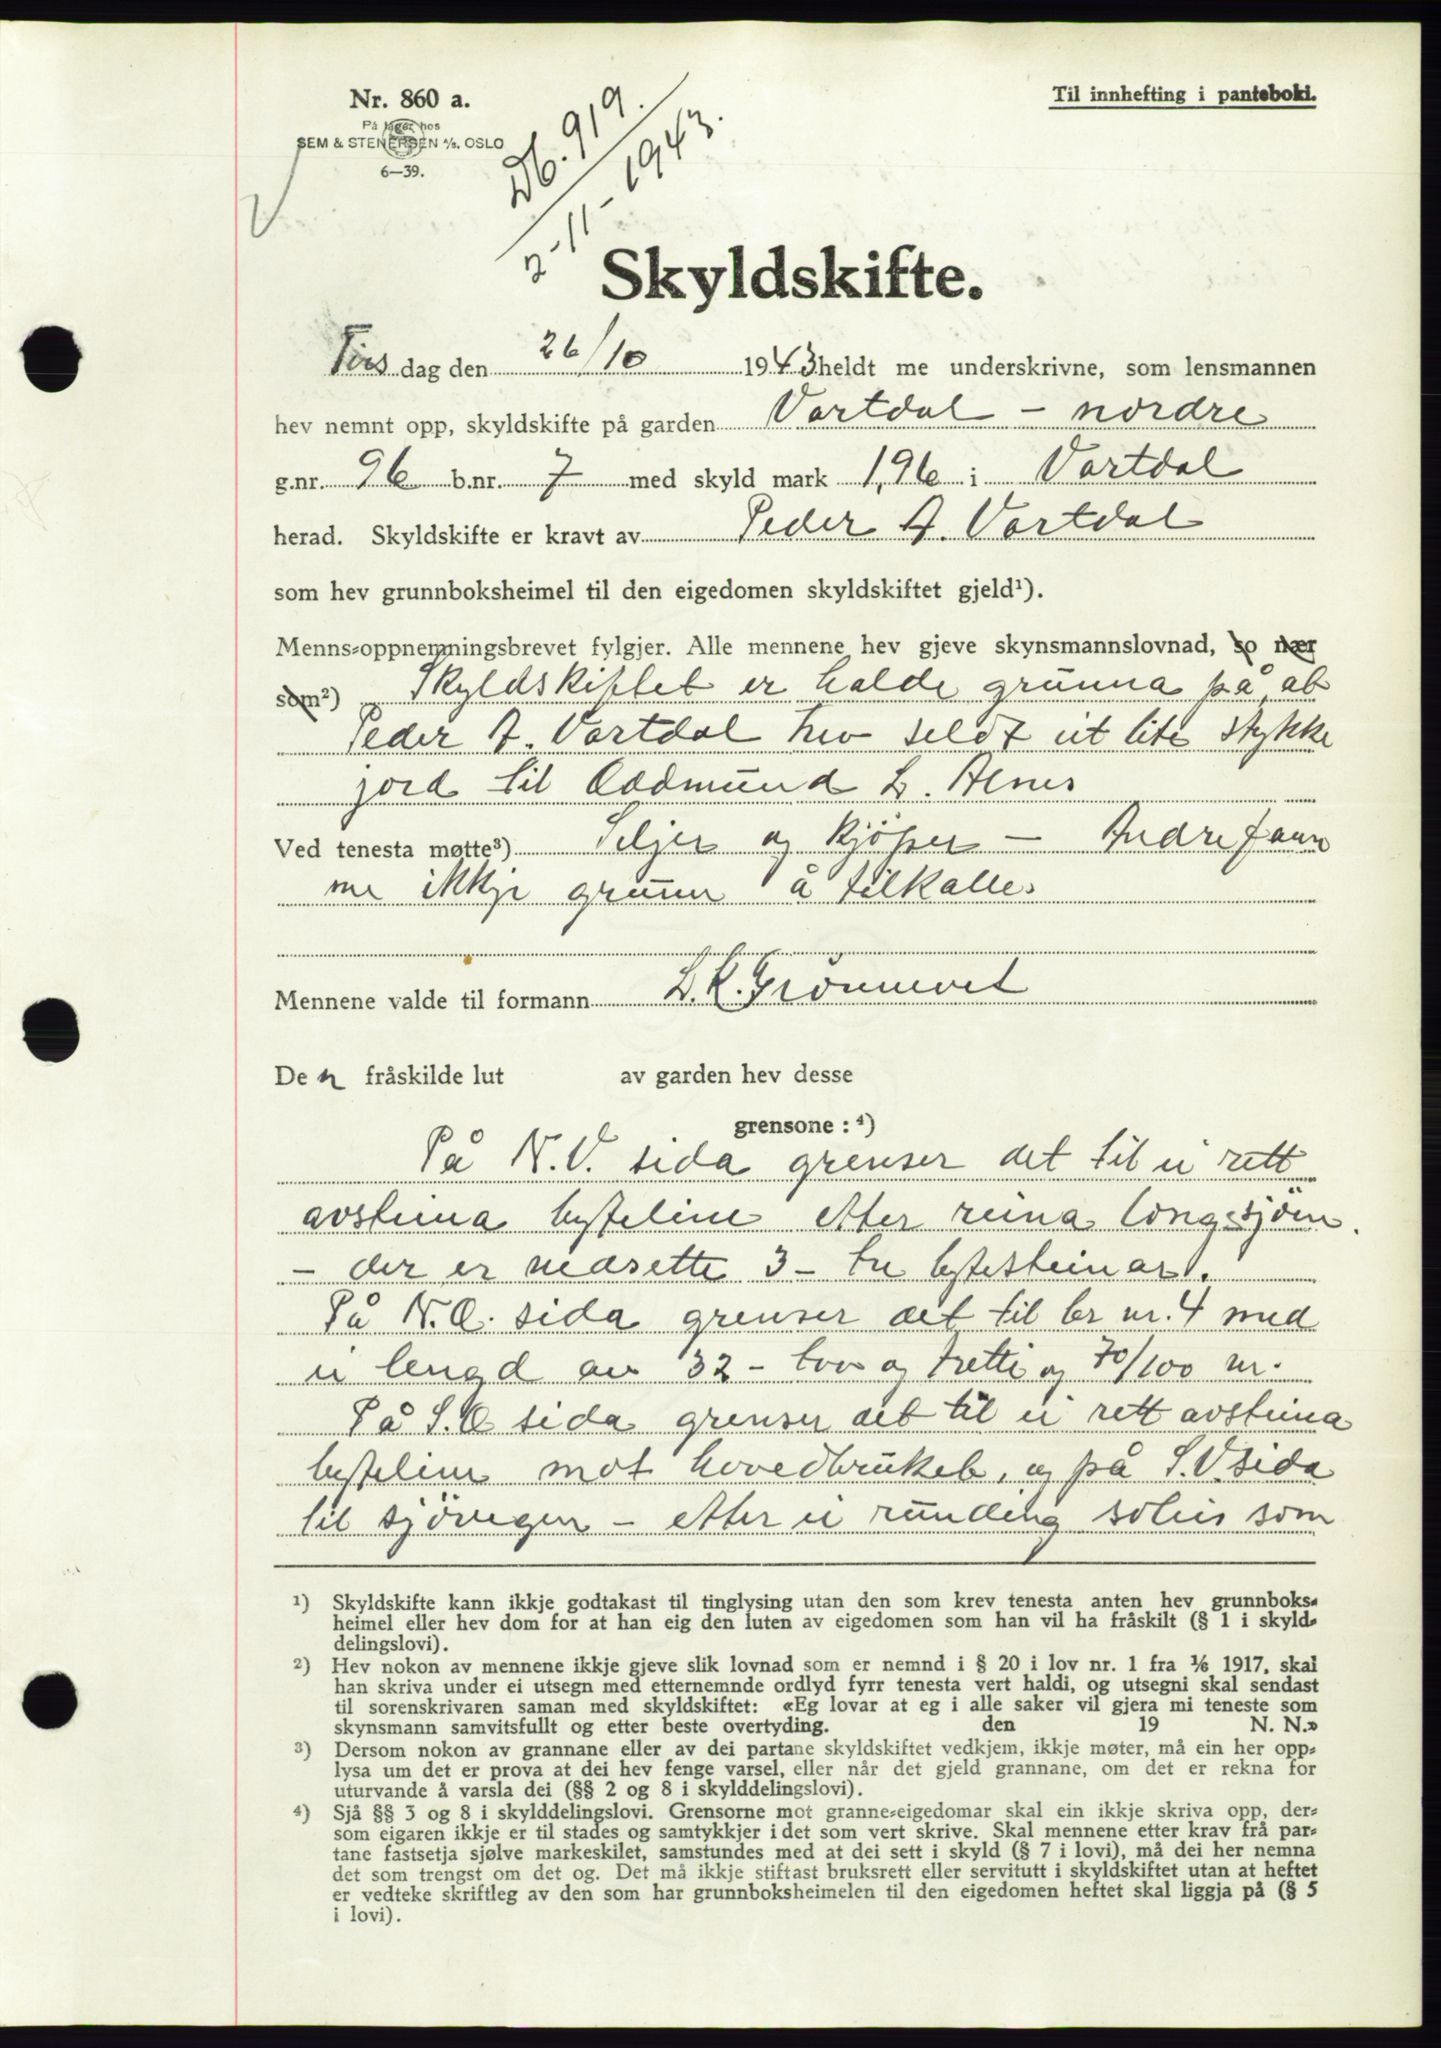 Nr. 860 a.
På lager hos
SEM & STENERSEN A/S. OSLO
6—39.
Til innhefting i panteboki.
Db. 919.
2-11-1943.
Skyldskifte.
Tirs dag den 26/10 1943 heldt me underskrivne, som lensmannen
hev nemnt opp, skyldskifte på garden Vartdal - nordre
g.nr. 96 b.nr. 7 med skyld mark 1,96 i Vartdal
herad. Skyldskifte er kravt av Peder A. Vartdal
som hev grunnboksheimel til den eigedomen skyldskiftet gjeld¹).
Menns-oppnemningsbrevet fylgjer. Alle mennene hev gjeve skynsmannslovnad, so nær
som²) Skyldskiftet er halde grunna på, at
Peder A. Vartdal hev seldt eit lite stykke
jord til Oddmund L. Alnes
Ved tenesta møtte³) Seljer og kjöper - Andre fann
me ikkje grunn å tilkalle.
Mennene valde til formann L. K. Grönnevet
De n fråskilde lut av garden hev desse
grensone : ⁴)
På N.V. sida grenser det til ei rett
avsteina byteline etter reina langs sjöen.
- der er nedsette 3 - tre bytesteinar.
På N.O. sida grenser det til br nr. 4 med
ei lengd av 32 - tvo og tretti og 70/100 m.
På S.O sida grenser det til ei rett avsteina
byteline mot hovedbruket, og på S.V. sida
til sjövegen - etter ei runding soleis som
¹) Skyldskifte kann ikkje godtakast til tinglysing utan den som krev tenesta anten hev grunnboks-
heimel eller hev dom for at han eig den luten av eigedomen som han vil ha fråskilt (§ 1 i skyld-
delingslovi).
²) Hev nokon av mennene ikkje gjeve slik lovnad som er nemnd i § 20 i lov nr. 1 fra ¹/₆ 1917, skal
han skriva under ei utsegn med etternemnde ordlyd fyrr tenesta vert haldi, og utsegni skal sendast
til sorenskrivaren saman med skyldskiftet: «Eg lovar at eg i alle saker vil gjera mi teneste som
skynsmann samvitsfullt og etter beste overtyding. den 19 N. N.»
³) Dersom nokon av grannane eller av dei partane skyldskiftet vedkjem, ikkje møter, må ein her opp-
lysa um det er prova at dei hev fenge varsel, eller når det gjeld grannane, om det er rekna for
uturvande å varsla dei (§§ 2 og 8 i skylddelingslovi).
⁴) Sjå §§ 3 og 8 i skylddelingslovi. Grensorne mot granne-eigedomar skal ein ikkje skriva opp, der-
som eigaren ikkje er til stades og samtykkjer i det som vert skrive. Skal mennene etter krav frå par-
tane fastsetja sjølve markeskilet, samstundes med at dei sett i skyld (§ 7 i lovi), må dei her nemna
det som trengst om det og. Det må ikkje stiftast bruksrett eller servitutt i skyldskiftet utan at heftet
er vedteke skriftleg av den som har grunnboksheimelen til den eigedomen heftet skal liggja på (§ 5
i lovi).